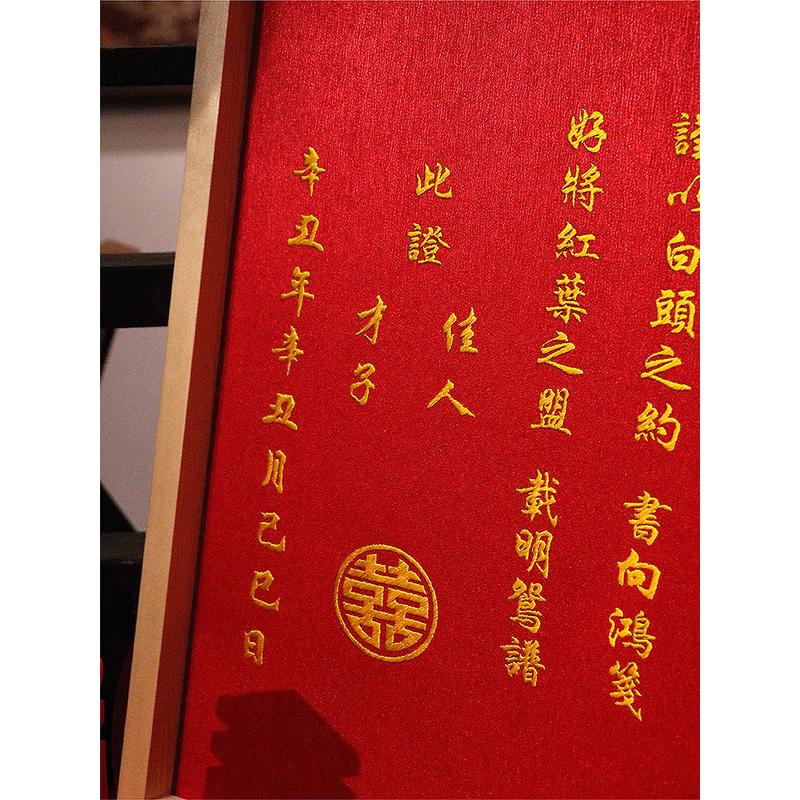 謹以白頭之約 書向鴻箋
好將紅葉之盟 載明鴛譜
此證
佳人
才子
辛丑年辛丑月己巳日
囍